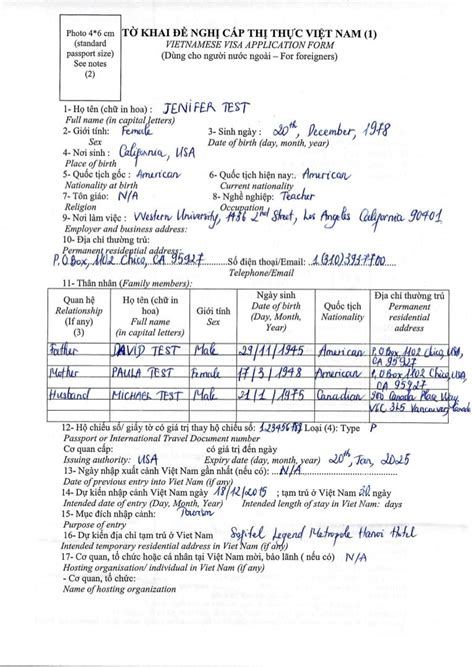 Photo 4*6 cm
(standard
passport size)
See notes
(2)
TỜ KHAI ĐỀ NGHỊ CẤP THỊ THỰC VIỆT NAM (1)
VIETNAMESE VISA APPLICATION FORM
(Dùng cho người nước ngoài – For foreigners)
1- Họ tên (chữ in hoa) : JENIFER TEST
Full name (in capital letters)
2- Giới tính: Female 3- Sinh ngày : 20th, December, 1978
Sex Date of birth (day, month, year)
4- Nơi sinh : California, USA
Place of birth
5- Quốc tịch gốc : American 6- Quốc tịch hiện nay: American
Nationality at birth Current nationality
7- Tôn giáo: N/A 8- Nghề nghiệp: Teacher
Religion Occupation
9- Nơi làm việc : Western University, 1436 2nd Street, Los Angeles California 90401
Employer and business address:
10- Địa chỉ thường trú:
Permanent residential address:
P.O Box, 1102 Chico, CA 95927 Số điện thoại/Email: 1(310)3937700
Telephone/Email
11- Thân nhân (Family members):
Quan hệ Relationship (If any) (3) Họ tên (chữ in hoa) Full name (in capital letters) Giới tính Sex Ngày sinh Date of birth (Day, Month, Year) Quốc tịch Nationality Địa chỉ thường trú Permanent residential address
Father DAVID TEST Male 29/11/1945 American P.O Box 1102 Chico, USA, CA 95927
Mother PAULA TEST Female 17/3/1948 American P.O Box, 1102 Chico, CA 95927
Husband MICHAEL TEST Male 21/1/1975 Canadian Canada Place Way Vancouver
12- Hộ chiếu số/ giấy tờ có giá trị thay hộ chiếu số: Loại (4): Type P
Passport or International Travel Document number
Cơ quan cấp: có giá trị đến ngày
Issuing authority: USA Expiry date (day, month, year) 20th, Jan, 2025
13- Ngày nhập xuất cảnh Việt Nam gần nhất (nếu có): N/A
Date of previous entry into Việt Nam (if any)
14- Dự kiến nhập cảnh Việt Nam ngày 18/12/2015 ; tạm trú ở Việt Nam ngày
Intended date of entry (Day, Month, Year) Intended length of stay in Việt Nam: days
15- Mục đích nhập cảnh: Tourism
Purpose of entry
16- Dự kiến địa chỉ tạm trú ở Việt Nam Sofitel Legend Metropole Hanoi Hotel
Intended temporary residential address in Việt Nam (if any)
17- Cơ quan, tổ chức hoặc cá nhân tại Việt Nam mời, bảo lãnh ( nếu có) N/A
Hosting organisation/ individual in Việt Nam (if any)
- Cơ quan, tổ chức:
Name of hosting organization